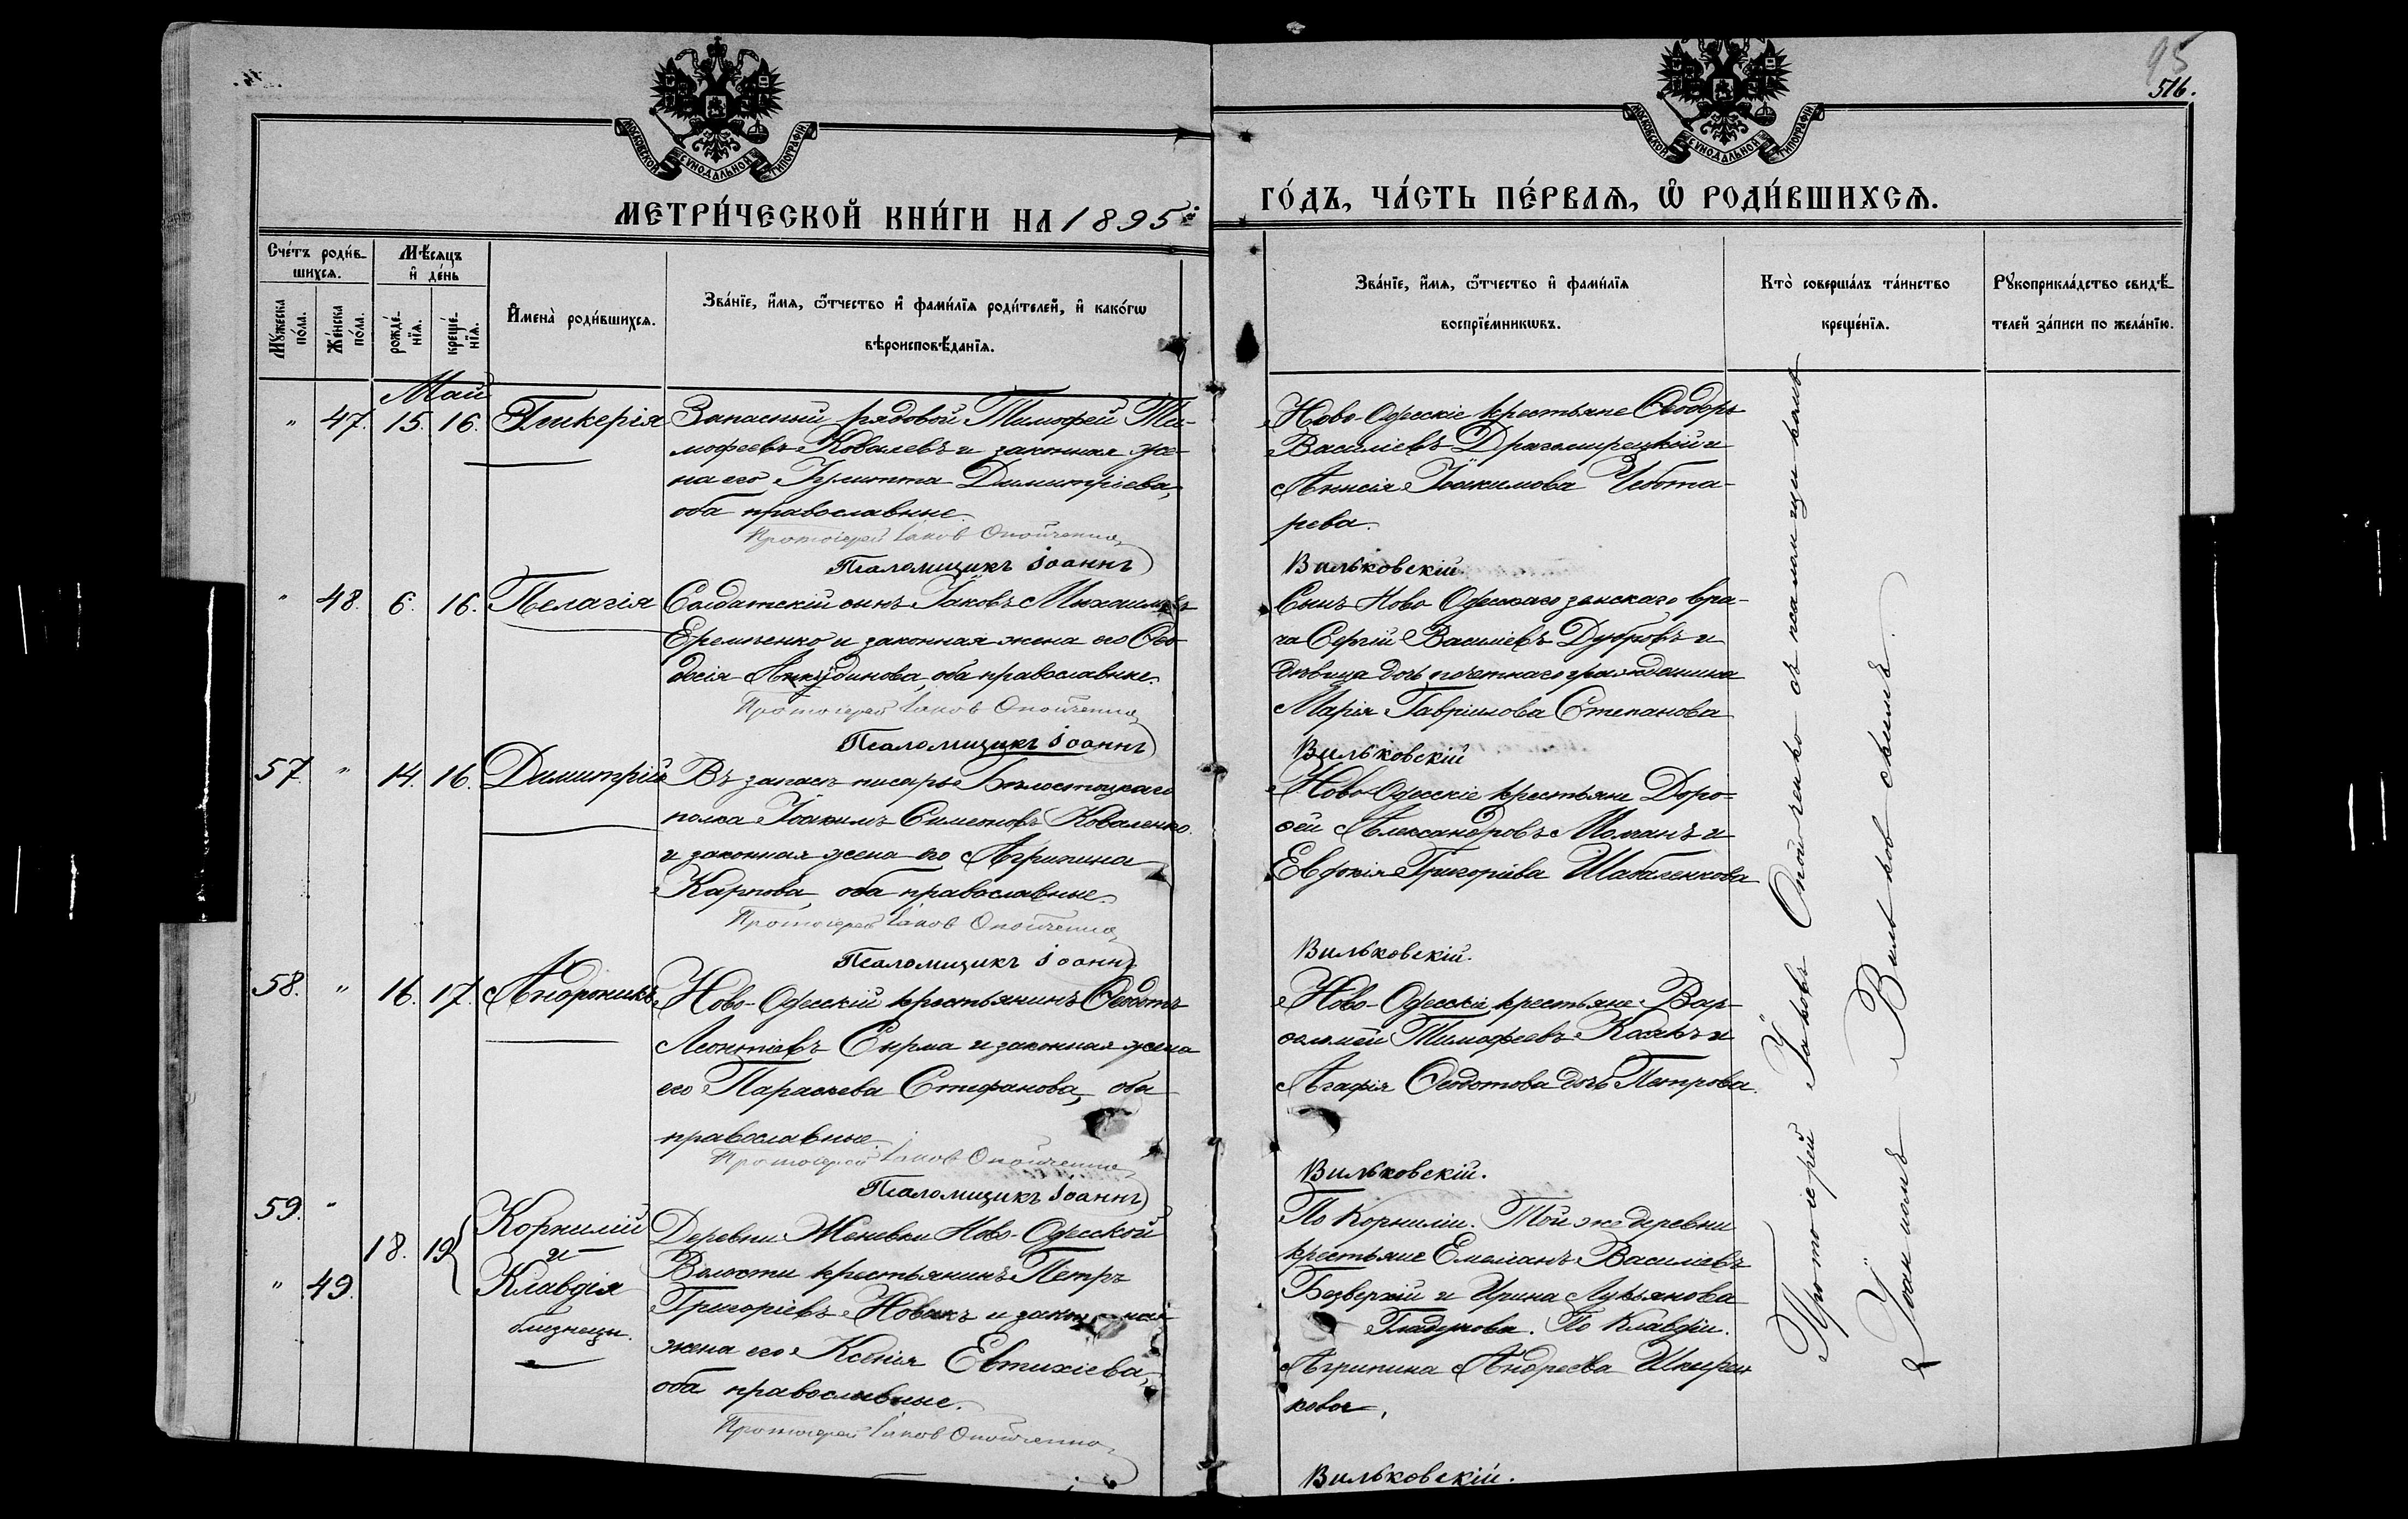 95
516.
МОСКОВСКОЙ СѴНОДАЛЬНОЙ ТИПОГРАФІИ
МОСКОВСКОЙ СѴНОДАЛЬНОЙ ТИПОГРАФІИ
МЕТРИ́ЧЕСКОЙ КНИ́ГИ НА 1895й
ГО́ДЪ, ЧА́СТЬ ПЕ́РВАѦ, Ѡ҆ РОДИ́ВШИХСѦ.
Сче́тъ роди́в-
шихсѧ.
Мꙋ́жеска по́ла.
Же́нска по́ла.
Мѣ́сѧцъ
и҆ де́нь
рожде́-
нїѧ.
креще́-
нїѧ.
И҆мена̀ роди́вшихсѧ.
Зва́нїе, и҆́мѧ, ѻ҆́тчество и҆ фами́лїѧ роди́телей, и҆ како́гѡ
вѣроисповѣ́данїѧ.
Зва́нїе, и҆́мѧ, ѻ҆́тчество и҆ фами́лїѧ
воспрїе́мникѡвъ.
Кто̀ соверша́лъ та́инство
креще́нїѧ.
Рꙋкоприкла́дство свидѣ́-
телей за́писи по жела́нїю.
Май
" 47. 15. 16. Гликерія
Запасный рядовой Тимофей Ти-
мофеевъ Ковалевъ и законная же-
на его Іулитта Димитріева,
оба православные.
Протоіерей Іаков Опойченко
Псаломщикъ Іоаннъ
Ново-Одесскіе крестьяне Ѳеодоръ
Василіевъ Драгомирецкій и
Анисія Іоакимова Чебота-
рева.
Вильковскій.
" 48. 6. 16. Пелагія
Солдатскій сынъ Іаковъ Михаиловъ
Еременко и законная жена его Ѳео-
досія Анкудинова, оба православные.
Протоіерей Іаков Опойченко
Псаломщикъ Іоаннъ
Сынъ Ново Одесскаго земскаго вра-
ча Сергій Василіевъ Дубровъ и
дѣвица дочь почетнаго гражданина
Марія Гавріилова Степанова
Вильковскій
57. " 14. 16. Димитрій
Въ запасѣ писарь Бѣлостоцкаго
полка Іоакимъ Симеоновъ Коваленко
и законная жена его Агрипина
Карпова, оба православные.
Протоіерей Іаков Опойченко
Псаломщикъ Іоаннъ
Ново-Одесскіе крестьяне Доро-
ѳей Александровъ Молчанъ и
Евдокія Григоріева Шабаленкова
Вильковскій.
58. " 16. 17. Андроникъ
Ново-Одесскій крестьянинъ Ѳеодотъ
Леонтіевъ Сырма и законная жена
его Параскева Стефанова, оба
православные.
Протоіерей Іаков Опойченко
Псаломщикъ Іоаннъ
Ново-Одесскіе крестьяне Вар-
ѳоломей Тимофеевъ и
Агафія Ѳеодотова дочь Петрова.
Вильковскій.
59. "
18. 19.
" 49.
Корнилій
и
Клавдія
близнецы.
Деревни Женевки Ново-Одесской
Волости крестьянинъ Петръ
Григоріевъ Новакъ и законная
жена его Ксенія Евтихіева,
оба православные.
Протоіерей Іаков Опойченко
По Корниліи. Той же деревни
крестьяне Емеліанъ Василіевъ
Безверхій и Ирина Лукьянова
Гладунова. По Клавдіи.
Агрипина Андреева
кова,
Вильковскій.
Протоіерей Іаковъ Опойченко съ псаломщикомъ
Іоанномъ Вильковскимъ.